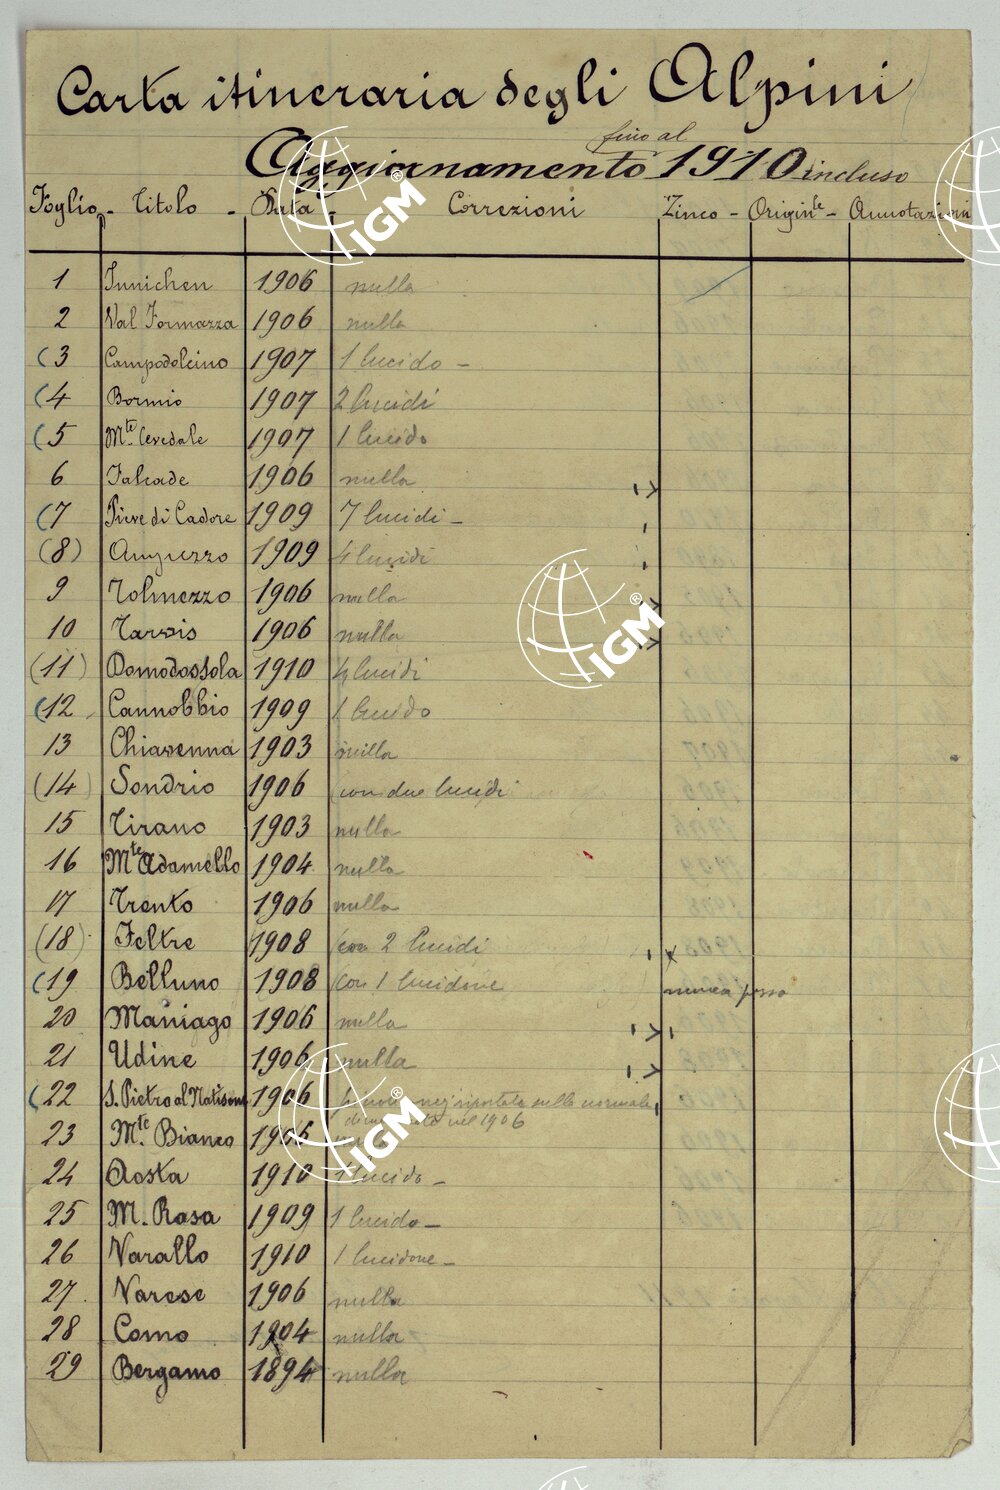 Carta itineraria degli Alpini
fino al
Aggiornamento 1910 incluso
Foglio - Titolo - Data - Correzioni Zinco - Origin.le - Annotazioni
1 Innichen 1906 nulla
2 Val Formazza 1906 nulla
(3 Campodolcino 1907 1 lucido -
(4 Bormio 1907 2 lucidi
(5 Mte. Cevedale 1907 1 lucido
6 Falcade 1906 nulla
(7 Pieve di Cadore 1909 7 lucidi -
(8) Ampezzo 1909 4 lucidi
9 Tolmezzo 1906 nulla
10 Tarvis 1906 nulla
(11) Domodossola 1910 4 lucidi
(12 Cannobbio 1909 1 lucido
13 Chiavenna 1903 nulla
(14) Sondrio 1906 con due lucidi
15 Tirano 1903 nulla
16 Mte Adamello 1904 nulla
17 Trento 1906 nulla
(18) Feltre 1908 con 2 lucidi
(19 Belluno 1908 con 1 lucidone
20 Maniago 1906 nulla
21 Udine 1906 nulla
(22 S. Pietro al Natisone 1906 riportata sulla normale
nel 1906
23 Mte. Bianco 1906
24 Aosta 1910 1 lucido -
25 M. Rosa 1909 1 lucido -
26 Varallo 1910 1 lucidone -
27 Varese 1906 nulla
28 Como 1904 nulla
29 Bergamo 1894 nulla
IGM
IGM
IGM